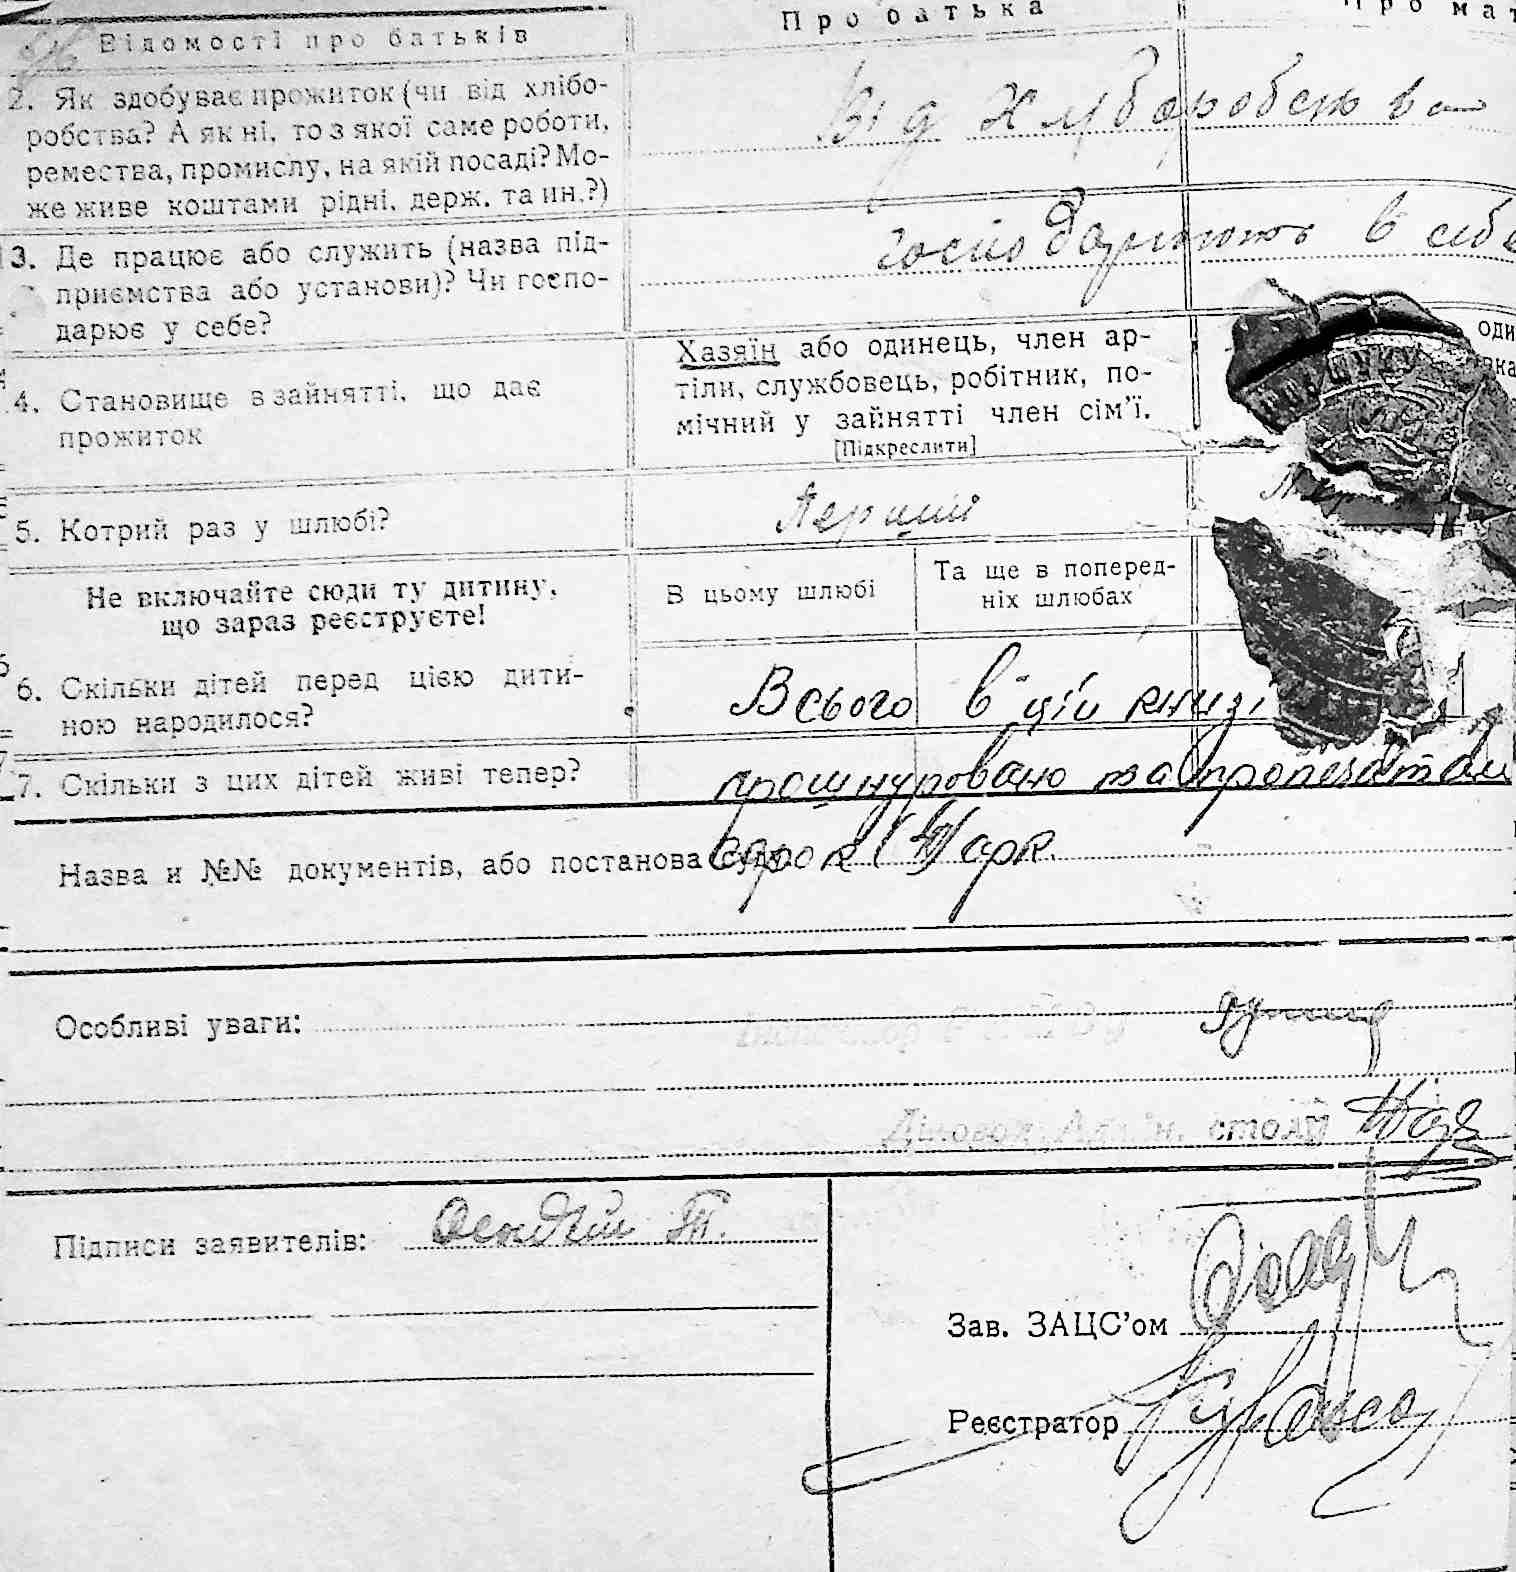 Відомості про батьків
Про батька
Про мат
2. Як здобуває прожиток (чи від хлібо-
робства? А як ні, то з якої саме роботи,
ремества, промислу, на якій посаді? Мо-
же живе коштами рідні, держ. та ин.?)
Від хліборобства
3. Де працює або служить (назва під-
приємства або установи)? Чи госпо-
дарює у себе?
господарюють в себе
4. Становище в зайнятті, що дає
прожиток
Хазяїн або одинець, член ар-
тіли, службовець, робітник, по-
мічний у зайнятті член сім'ї.
[Підкреслити]
оди
вка
5. Котрий раз у шлюбі?
Перший
Не включайте сюди ту дитину,
що зараз реєструєте!
В цьому шлюбі
Та ще в поперед-
ніх шлюбах
6. Скільки дітей перед цією дити-
ною народилося?
Всього в цій книзі
7. Скільки з цих дітей живі тепер?
прошнуровано та пропечатан
Назва и №№ документів, або постанова суду
сорок арк.
Особливі уваги:
Діловод Адмін. столу
Підписи заявителів:
Зав. ЗАЦС'ом
Реєстратор